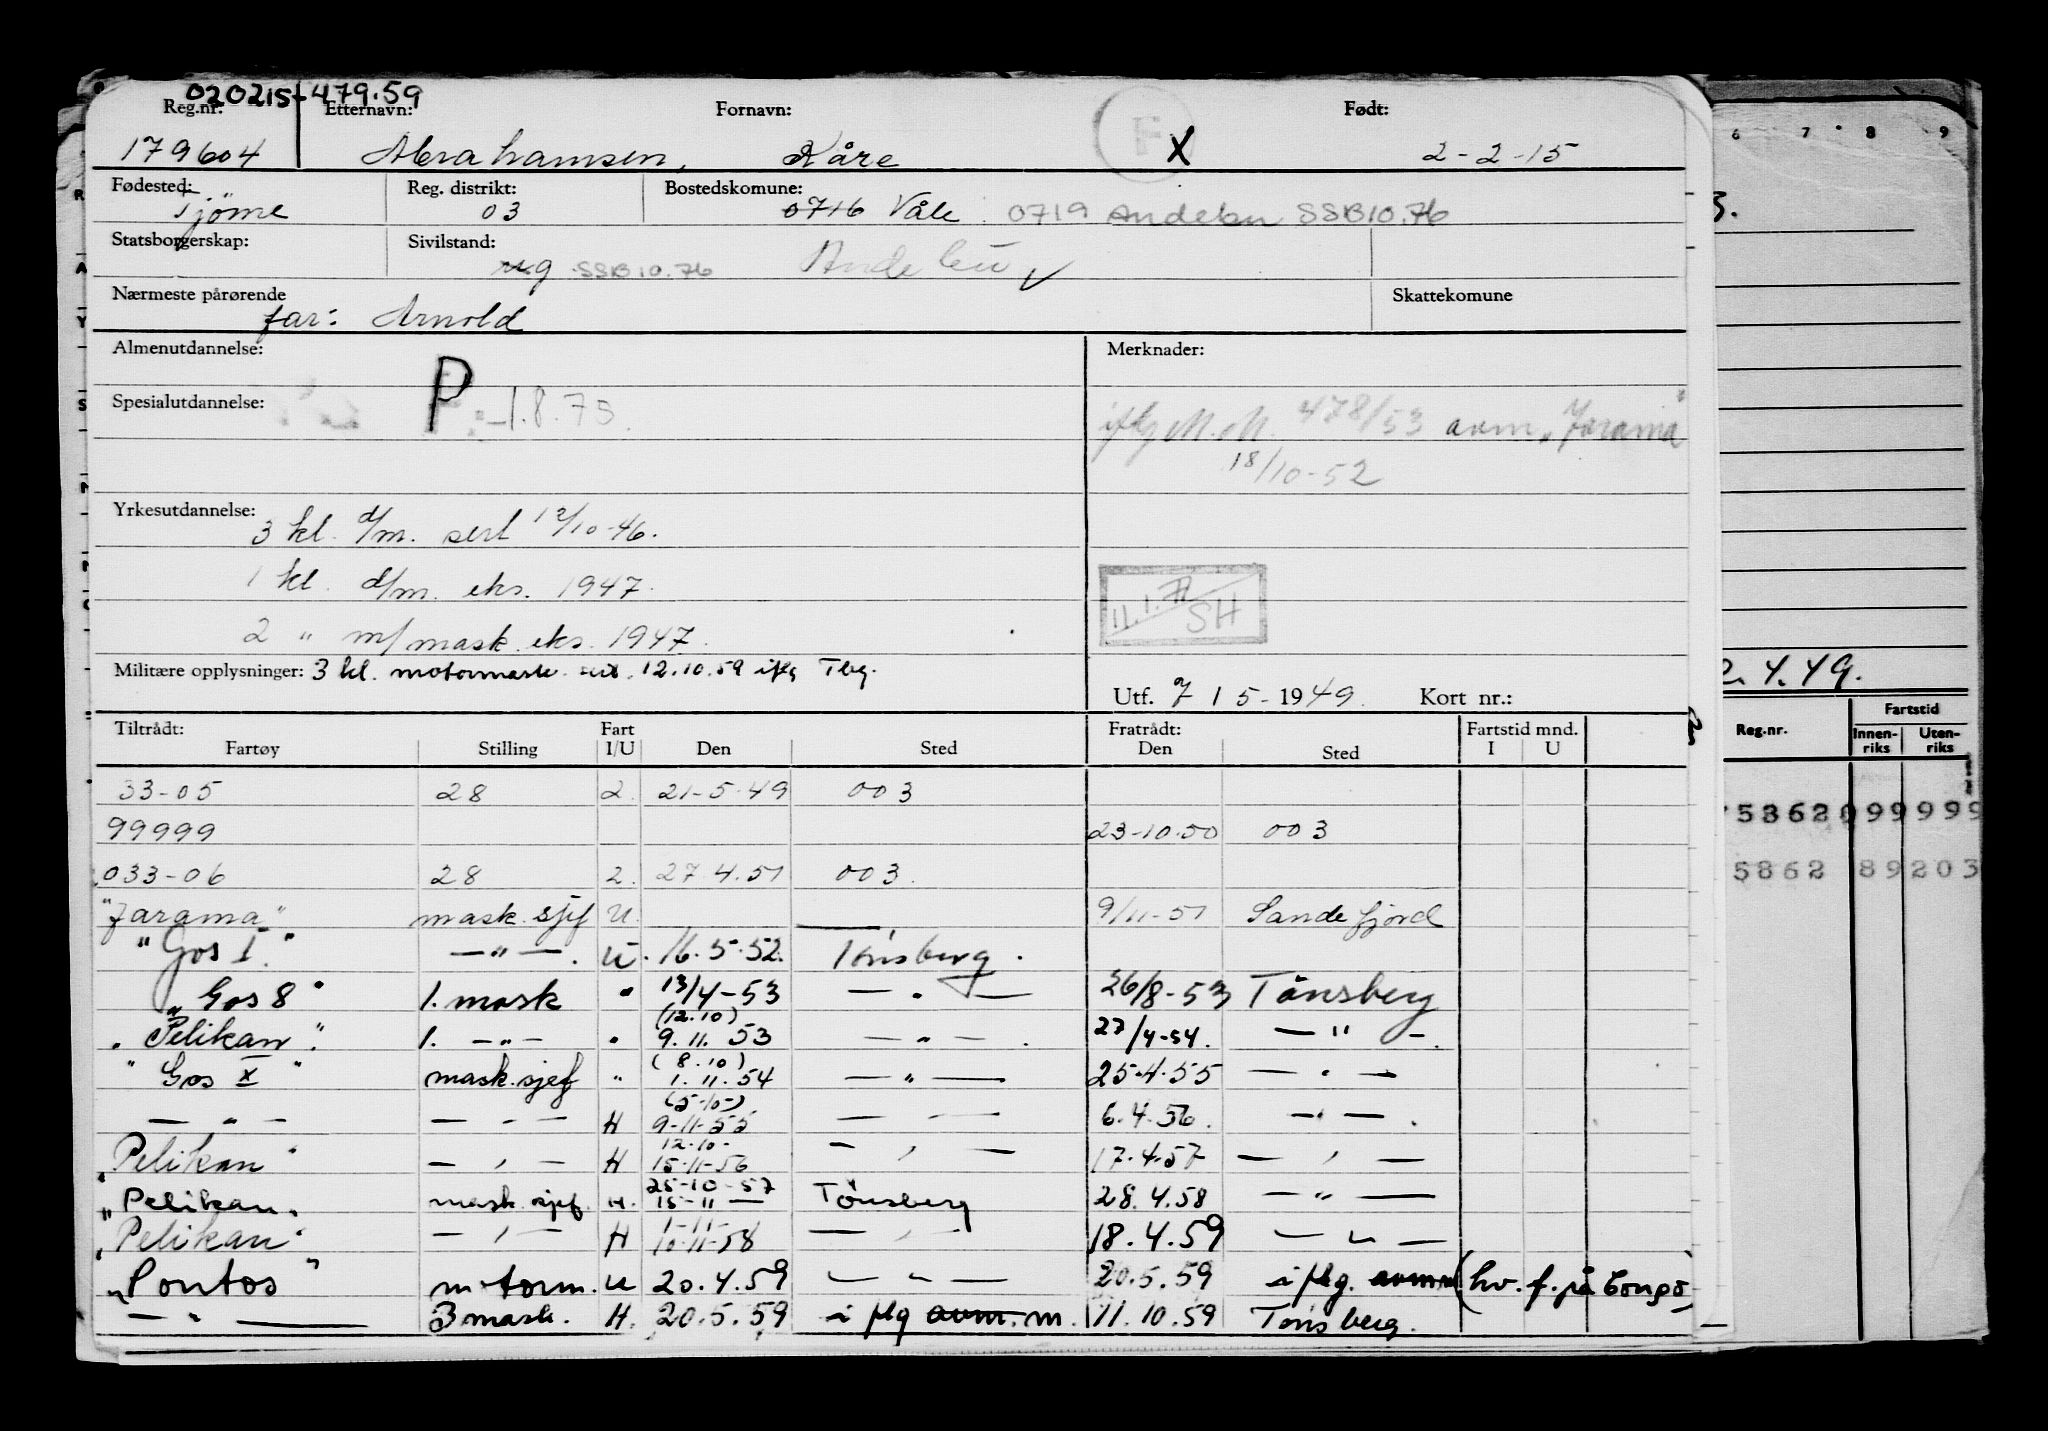 020215-479.59
Reg.nr. Etternavn: Fornavn: F Født:
179604 Abrahamsen, Kåre X 2-2-15
Fødested: Reg. distrikt: Bostedskomune:
Tjöme 03 0716 Våle 0719 Andebu SSB10.76
Statsborgerskap: Sivilstand:
ug SSB10.76 Andebu ✓
Nærmeste pårørende Skattekomune
far: Arnold
Almenutdannelse: Merknader:
P
Spesialutdannelse: 1.8.75. iflg M.M. 478/53 avm. "Jarama"
18/10-52
Yrkesutdannelse:
3 kl. d/m. sert 12/10-46.
1 kl. d/m. eks. 1947.
2 " m/mask.eks. 1947.
11.1.71 SH
Militære opplysninger: 3 kl. motormask. sert. 12.10.59 iflg Tbg.
Utf. 7 / 5 - 1949. Kort nr.:
Tiltrådt: Fart Fratrådt: Fartstid mnd.
Fartøy Stilling I/U Den Sted Den Sted I U
33-05 28 2. 21-5-49 003
99999 23-10.50 003
033-06 28 2. 27.4.51 003.
"Jarama" mask.sjef U. 9/11-51 Sandefjord
"Gos I." —"—. U. 16.5.52. Tönsberg.
"Gos 8" 1. mask " 13/4-53 — " — 26/8-53 Tönsberg
(12.10)
"Pelikan". 1. —"— " 9.11.53 — " — . 27/4-54. — " —.
(8.10)
"Gos X" mask.sjef " 1.11.54 — " — 25.4.55 — " —
(5-10-)
— " — — " — H 9-11-55 — — 6.4.56. — " — .
12-10-
"Pelikan" — " — H 15-11-56 — " — 17.4.57 — " —
25-10-57
"Pelikan" mask.sjef. H. 15-11 — Tönsberg 28.4.58 — " —
1-11-
"Pelikan" — " — H 10-11-58 — " — 18.4.59 — " —
"Pontos" motorm. U 20.4.59 — " — 20.5.59 iflg. avm (hv. f. på Congo)
— " — 3 mask. H. 20.5.59 iflg avm. m. 11.10.59 Tönsberg.
6 7 8 9
3.
2.4.49.
Reg.nr. Fartstid
Innen-riks Uten-riks
53620 99 999
5862 89 203